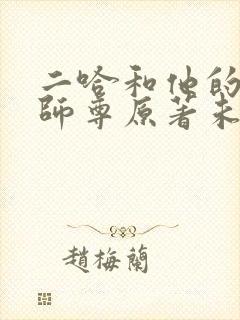 二哈和他的
師尊原著未
趙梅蘭